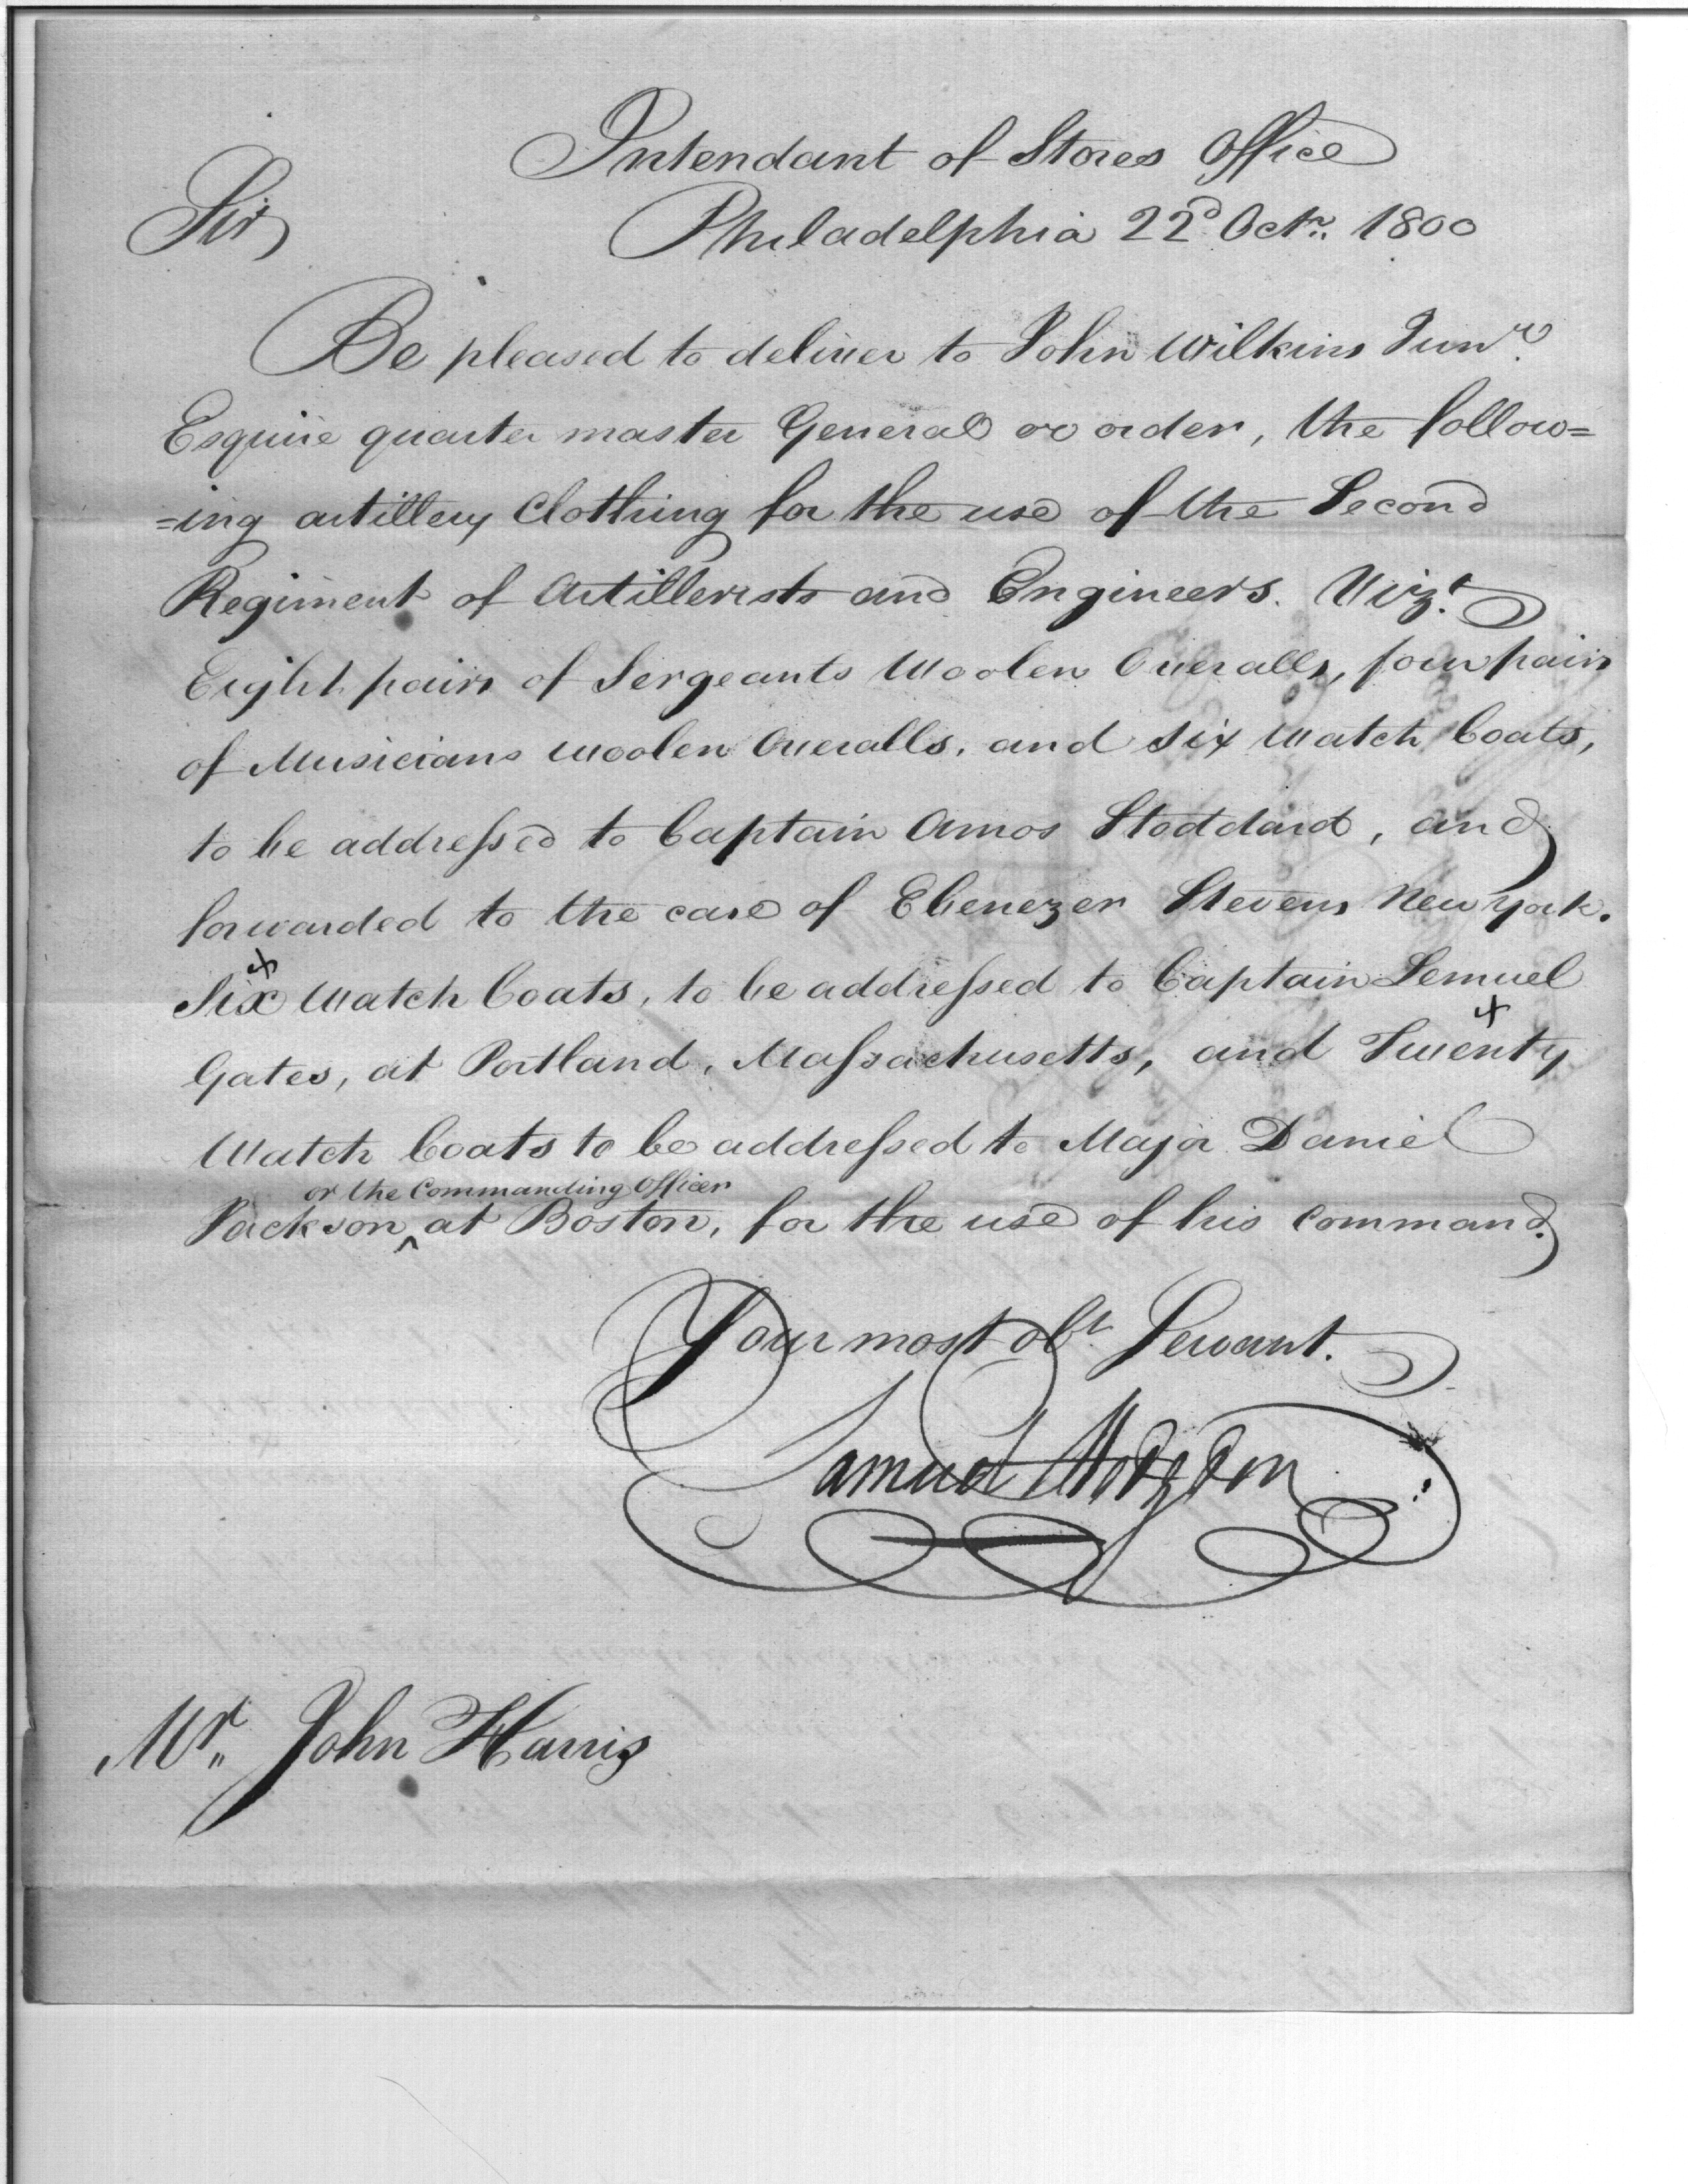 Intendant of Stores Office
Sir
Philadelphia 22d Octr. 1800
Be pleased to deliver to John Wilkins Junr.
Esquire quarter master General or order, the follow=
=ing artillery Clothing for the use of the Second
Regiment of Artillerists and Engineers. Vizt.
Eight pairs of Sergeants Woolen Overalls, four pairs
of Musicians woolen Overalls, and six Watch Coats,
to be addressed to Captain Amos Stoddard, and
forwarded to the care of Ebenezer Stevens New York.
Six Watch Coats, to be addressed to Captain Lemuel
Gates, at Portland, Massachusetts, and Twenty
Watch Coats to be addressed to Major Daniel
or the Commanding Officer
Jackson ^ at Boston, for the use of his command.
Your most obt. Servant.
Samuel Hodgdon
Mr. John Harris